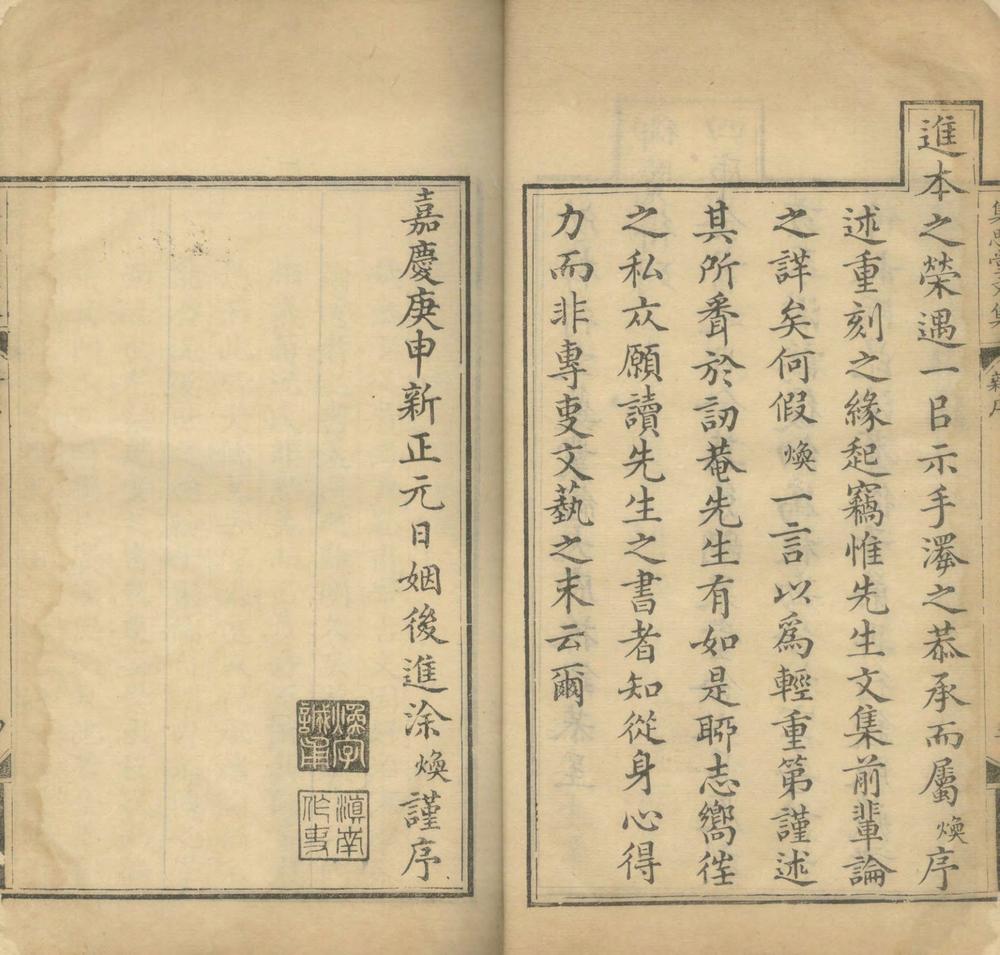 進本之榮遇一㠯示手澤之恭承而屬煥序
述重刻之緣起竊惟先生文集前輩論
之詳矣何假煥一言以爲輕重第謹述
其所䎽於訒菴先生有如是聊志嚮徃
之私众願讀先生之書者知從身心得
力而非專叓文藝之末云爾
嘉慶庚申新正元日姻後進涂煥謹序
煥字誠甫
滇南作吏